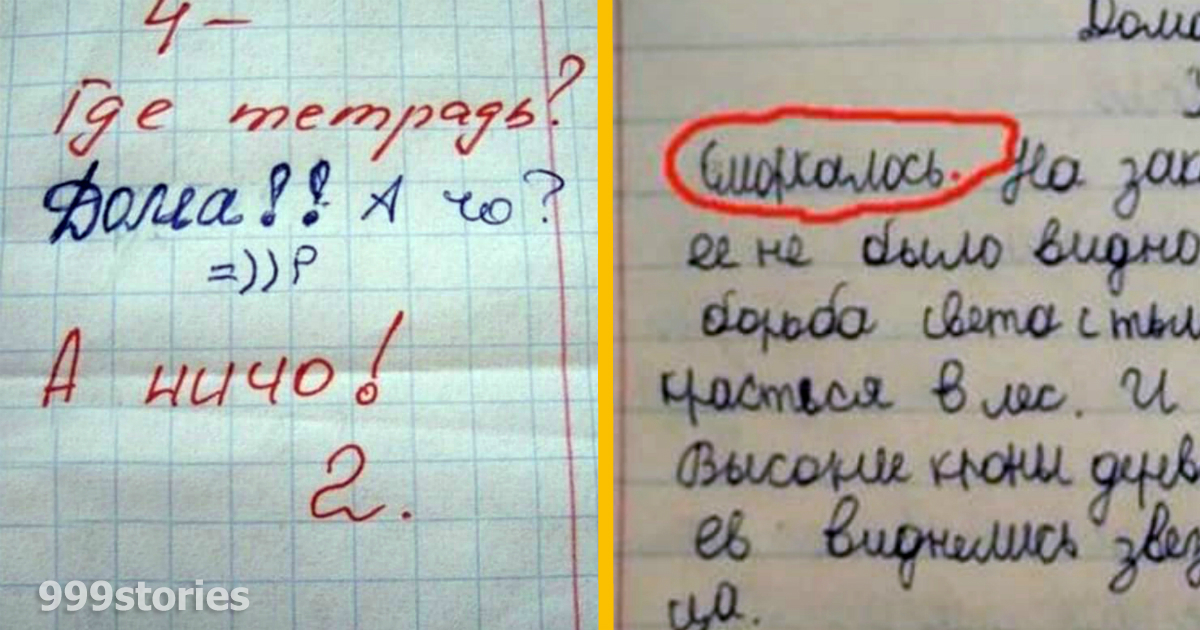 4-
Где тетрадь?
Дома!! А чо?
=))P
А ничо!
2.
999stories
Дома
Сморкалось. На зак
ее не было видно
борьба света с тьм
красться в лес. И
Высокие кроны дерев
ев виднелись звез
ца.